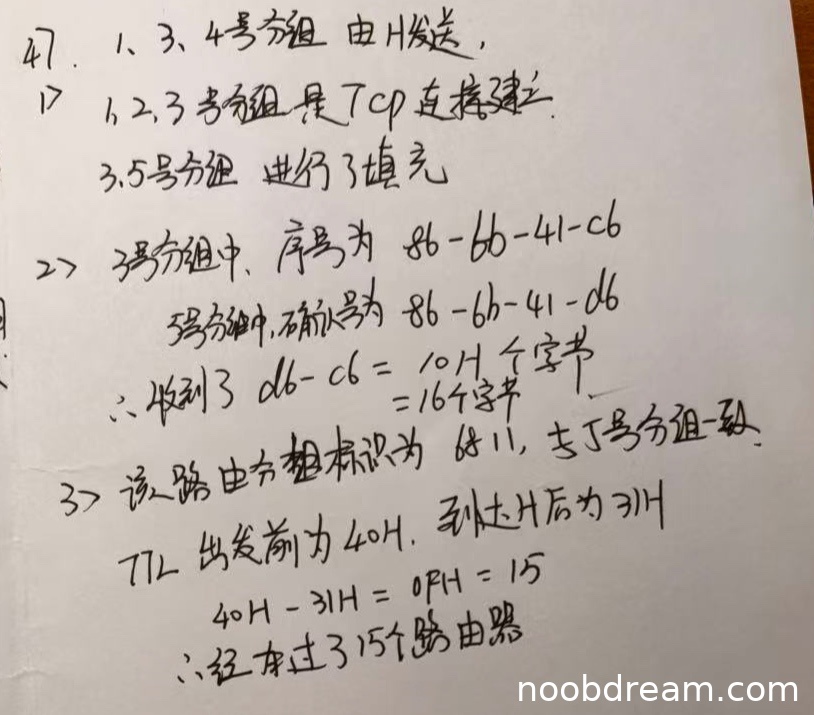 47. 1、3、4号分组 由H发送,
1> 1,2,3号分组是Tcp连接建立.
3.5号分组 进行了填充
2> 3号分组中、序号为 86-6b-41-c6
5号分组中,确认号为 86-6b-41-d6
∴收到了 d6-c6 = 10H个字节
=16个字节
3> 该路由分组标识为 6811,与5号分组一致.
TTL 出发前为40H. 到达H后为31H
40H-31H = 0FH = 15
∴经过了15个路由器
noobdream.com